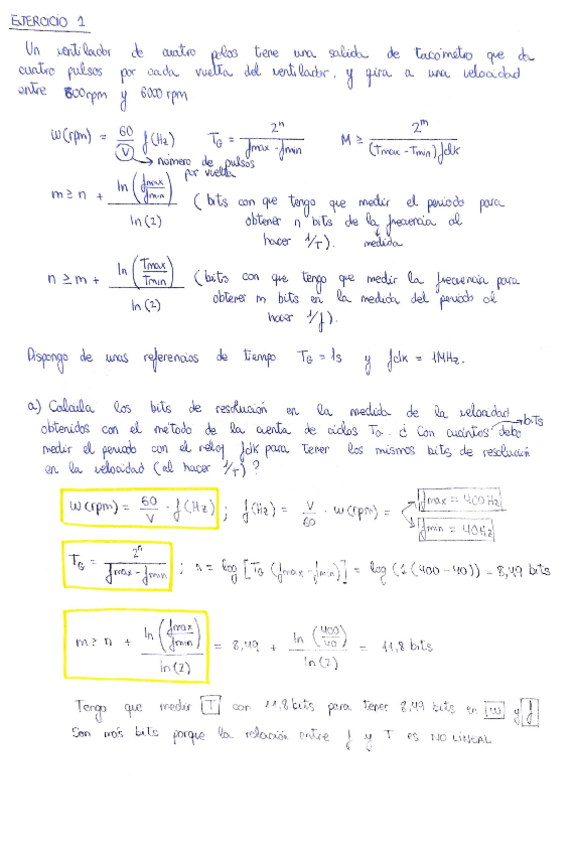 EJERCICIO 1
Un ventilador de cuatro palas tiene una salida de tacómetro que da
cuatro pulsos por cada vuelta del ventilador, y gira a una velocidad
entre 600rpm y 6000rpm
ω(rpm) = 60/V f(Hz)    TG = 2^n/(fmax - fmin)    M ≥ 2^m/((Tmax - Tmin) fclk)
número de pulsos
por vuelta
m ≥ n + ln(fmax/fmin)/ln(2) (bits con que tengo que medir el periodo para
obtener n bits de la frecuencia al
hacer 1/T). medida
n ≥ m + ln(Tmax/Tmin)/ln(2) (bits con que tengo que medir la frecuencia para
obtener m bits en la medida del periodo al
hacer 1/f).
Dispongo de unas referencias de tiempo TG = 1s y fclk = 1MHz.
a) Calcula los bits de resolución en la medida de la velocidad
bits
obtenidos con el método de la cuenta de ciclos TG. ¿Con cuántos debo
medir el periodo con el reloj fclk para tener los mismos bits de resolución
en la velocidad (al hacer 1/T)?
ω(rpm) = 60/V · f(Hz) ; f(Hz) = V/60 · ω(rpm) = fmax = 400Hz
fmin = 40Hz
TG = 2^n/(fmax - fmin) ; n = log [TG (fmax - fmin)] = log (1(400 - 40)) = 8,49 bits
m ≥ n + ln(fmax/fmin)/ln(2) = 8,49 + ln(400/40)/ln(2) = 11,8 bits
Tengo que medir T con 11,8 bits para tener 8,49 bits en ω y f
Son más bits porque la relación entre f y T es NO LINEAL